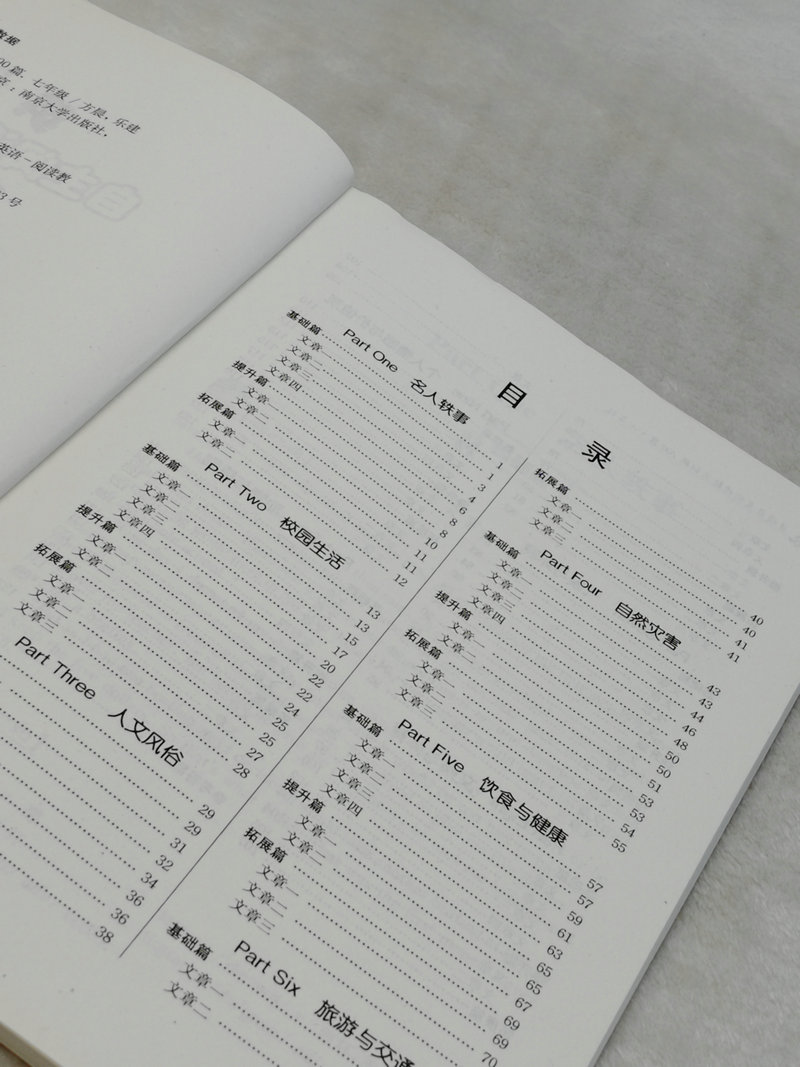 数据
00篇. 七年级 / 方晨, 乐建
京 : 南京大学出版社,
英语－阅读教
3号
目 录
Part One 名人轶事
基础篇 1
文章一 1
文章二 3
文章三 4
文章四 6
提升篇 8
文章一 8
文章二 10
拓展篇 11
文章一 11
文章二 12
Part Two 校园生活
基础篇 13
文章一 13
文章二 15
文章三 17
文章四 20
提升篇 22
文章一 22
文章二 24
拓展篇 25
文章一 25
文章二 27
文章三 28
Part Three 人文风俗
29
29
31
32
34
36
36
38
拓展篇 40
文章一 40
文章二 41
文章三 41
Part Four 自然灾害
基础篇 43
文章一 43
文章二 44
文章三 46
文章四 48
提升篇 50
文章一 50
文章二 51
拓展篇 53
文章一 53
文章二 54
文章三 55
Part Five 饮食与健康
基础篇 57
文章一 57
文章二 59
文章三 61
文章四 63
提升篇 65
文章一 65
文章二 67
拓展篇 69
文章一 69
文章二 70
文章三
Part Six 旅游与交通
基础篇
文章一
文章二